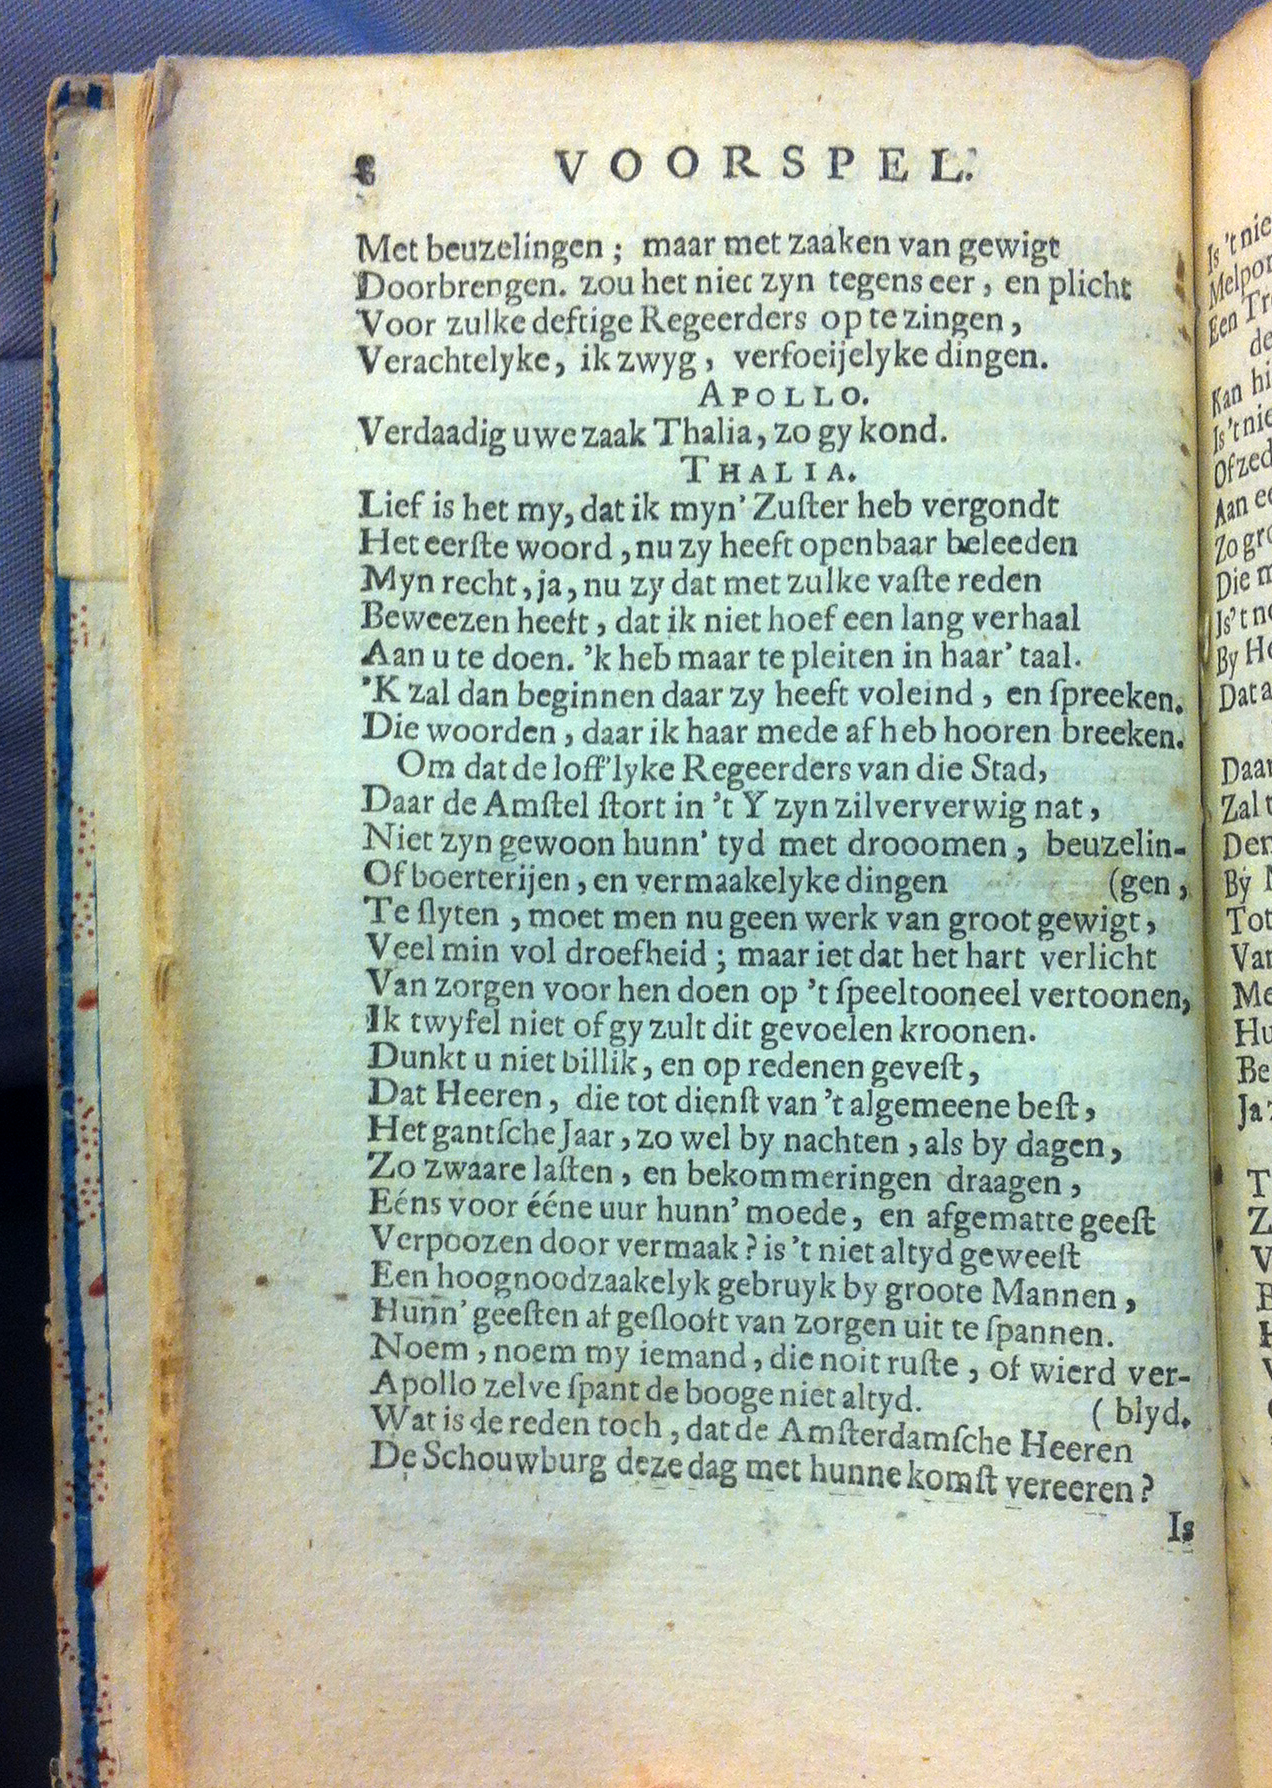 8 VOORSPEL.
Met beuzelingen ; maar met zaaken van gewigt
Doorbrengen. zou het niet zyn tegens eer, en plicht
Voor zulke deftige Regeerders op te zingen,
Verachtelyke, ik zwyg, verfoeijelyke dingen.
APOLLO.
Verdaadig uwe zaak Thalia, zo gy kond.
THALIA.
Lief is het my, dat ik myn' Zuſter heb vergondt
Het eerſte woord, nu zy heeft openbaar beleeden
Myn recht, ja, nu zy dat met zulke vaſte reden
Beweezen heeft, dat ik niet hoef een lang verhaal
Aan u te doen. 'k heb maar te pleiten in haar' taal.
'K zal dan beginnen daar zy heeft voleind, en ſpreeken.
Die woorden, daar ik haar mede af heb hooren breeken.
Om dat de loff'lyke Regeerders van die Stad,
Daar de Amſtel ſtort in 't Y zyn zilververwig nat,
Niet zyn gewoon hunn' tyd met drooomen, beuzelin-
Of boerterijen, en vermaakelyke dingen (gen,
Te ſlyten, moet men nu geen werk van groot gewigt,
Veel min vol droefheid ; maar iet dat het hart verlicht
Van zorgen voor hen doen op 't ſpeeltooneel vertoonen,
Ik twyfel niet of gy zult dit gevoelen kroonen.
Dunkt u niet billik, en op redenen geveſt,
Dat Heeren, die tot dienſt van 't algemeene beſt,
Het gantſche Jaar, zo wel by nachten, als by dagen,
Zo zwaare laſten, en bekommeringen draagen,
Eéns voor ééne uur hunn' moede, en afgematte geeſt
Verpoozen door vermaak? is 't niet altyd geweeſt
Een hoognoodzaakelyk gebruyk by groote Mannen,
Hunn' geeſten af geſlooft van zorgen uit te ſpannen.
Noem, noem my iemand, die noit ruſte, of wierd ver-
Apollo zelve ſpant de booge niet altyd. (blyd.
Wat is de reden toch, dat de Amſterdamſche Heeren
De Schouwburg deze dag met hunne komſt vereeren?
Is
Is 't nie
Een Tr
de
Kan hi
Is 't nie
Of zed
Zo gro
Die m
Is 't n
By H
Dat a
Daar
Zal t
Der
By
Tot
Van
Me
Hu
Be
Ja
T
Z
V